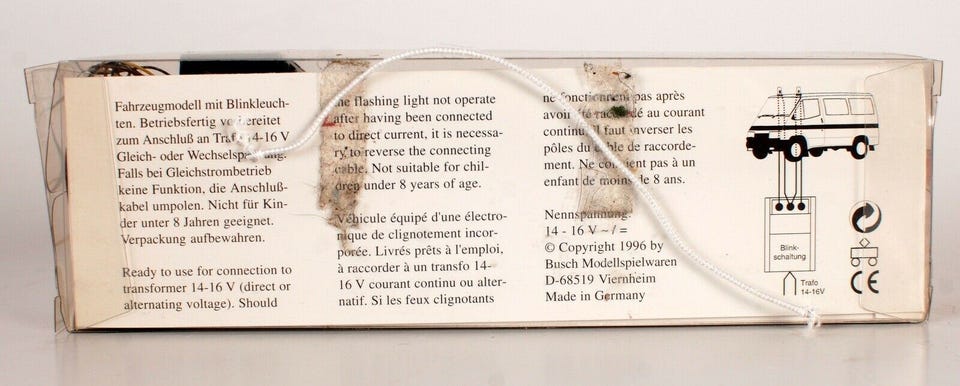 Fahrzeugmodell mit Blinkleuch-
ten. Betriebsfertig vorbereitet
zum Anschluß an Trafo 14-16 V
Gleich- oder Wechselspannung.
Falls bei Gleichstrombetrieb
keine Funktion, die Anschluß-
kabel umpolen. Nicht für Kin-
der unter 8 Jahren geeignet.
Verpackung aufbewahren.
Ready to use for connection to
transformer 14-16 V (direct or
alternating voltage). Should
the flashing light not operate
after having been connected
to direct current, it is necessa-
ry to reverse the connecting
cable. Not suitable for chil-
dren under 8 years of age.
Véhicule équipé d'une électro-
nique de clignotement incor-
porée. Livrés prêts à l'emploi,
à raccorder à un transfo 14-
16 V courant continu ou alter-
natif. Si les feux clignotants
ne fonctionnent pas après
avoir été raccordé au courant
continu il faut inverser les
pôles du câble de raccorde-
ment. Ne convient pas à un
enfant de moins de 8 ans.
Nennspannung:
14 - 16 V ~ / =
© Copyright 1996 by
Busch Modellspielwaren
D-68519 Viernheim
Made in Germany
Blink-
schaltung
Trafo
14-16V
CE